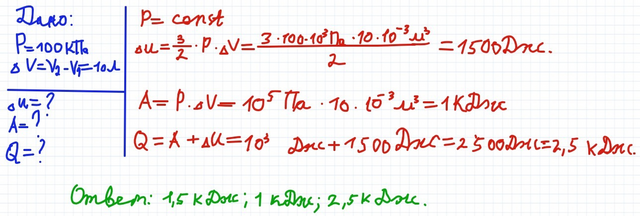 Дано:
P=100кПа
ΔV=V₂-V₁=10л
Δu=?
A=?
Q=?
P= const
Δu=3/2·P·ΔV=3·100·10³Па·10·10⁻³м³/2=1500Дж.
A=P·ΔV=10⁵Па·10·10⁻³м³=1кДж
Q=A+ΔU=10³ Дж+1500Дж=2500Дж=2,5 кДж.
Ответ: 1,5кДж; 1кДж; 2,5кДж.